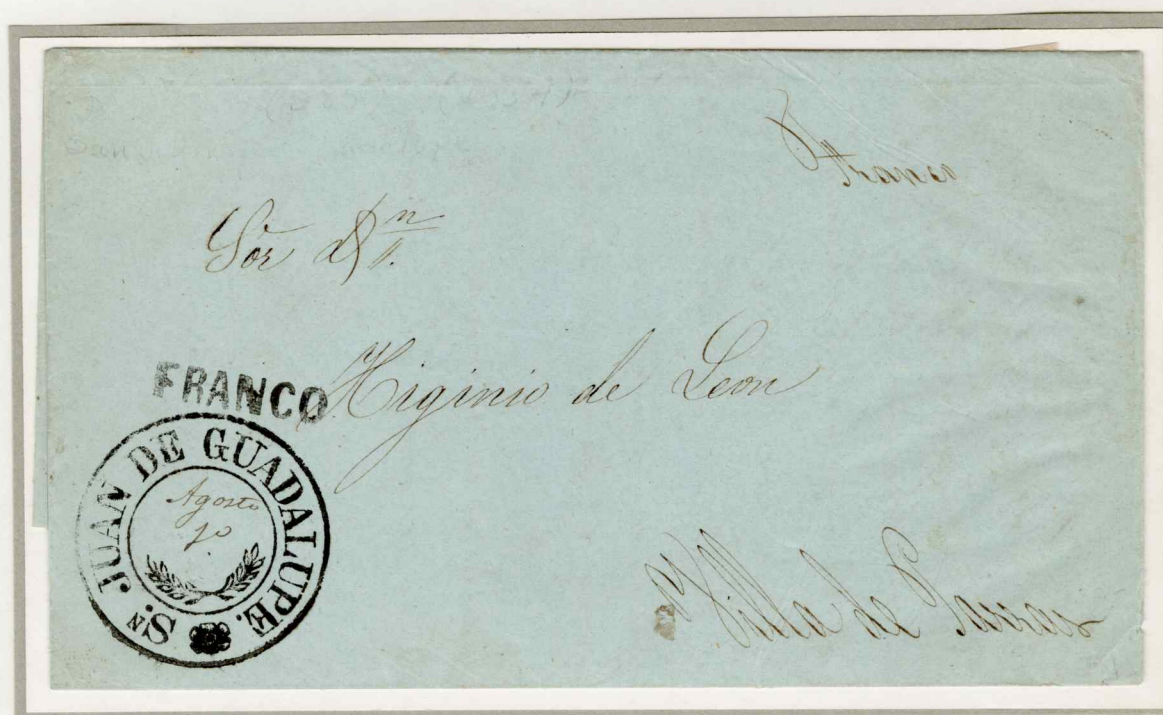 Franco
Sor Dn
FRANCO
Higinio de Leon
SN. JUAN DE GUADALUPE.
Agosto
10
Villa de Parras